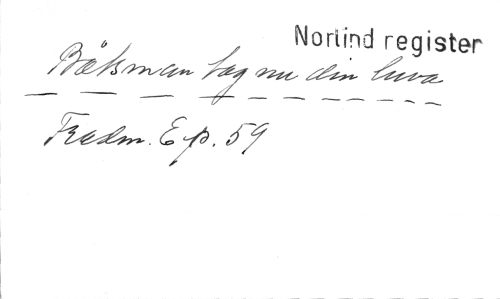 Norlind register
Båtsman tag nu din luva
Fredm. Ep. 59